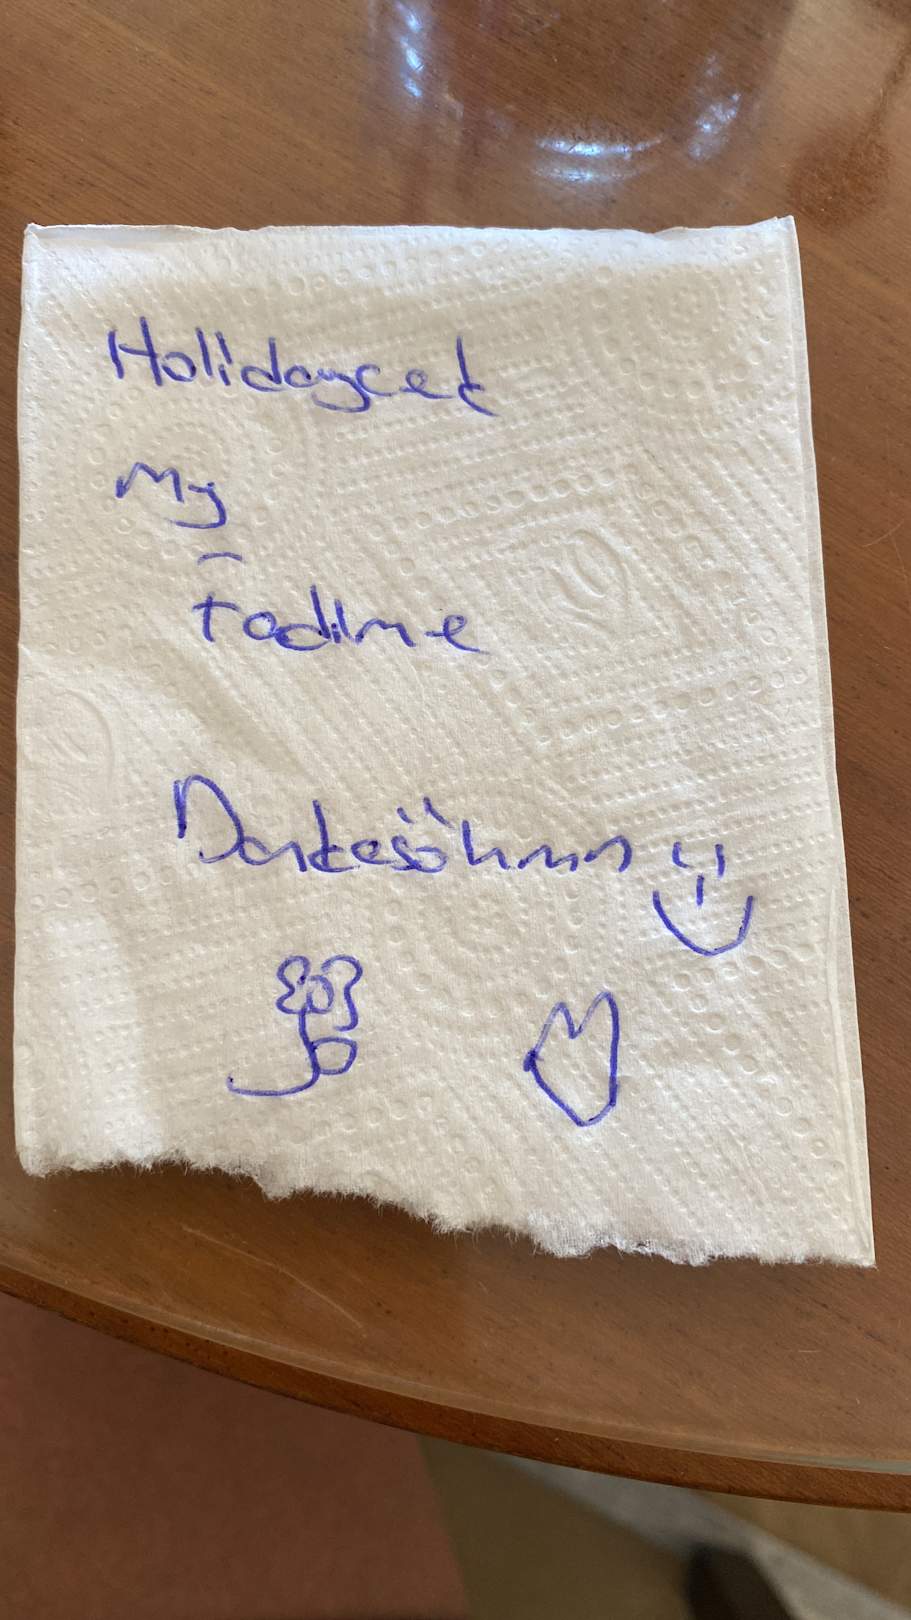 Holidaycet
My
Fadime
Dankesöhnnn